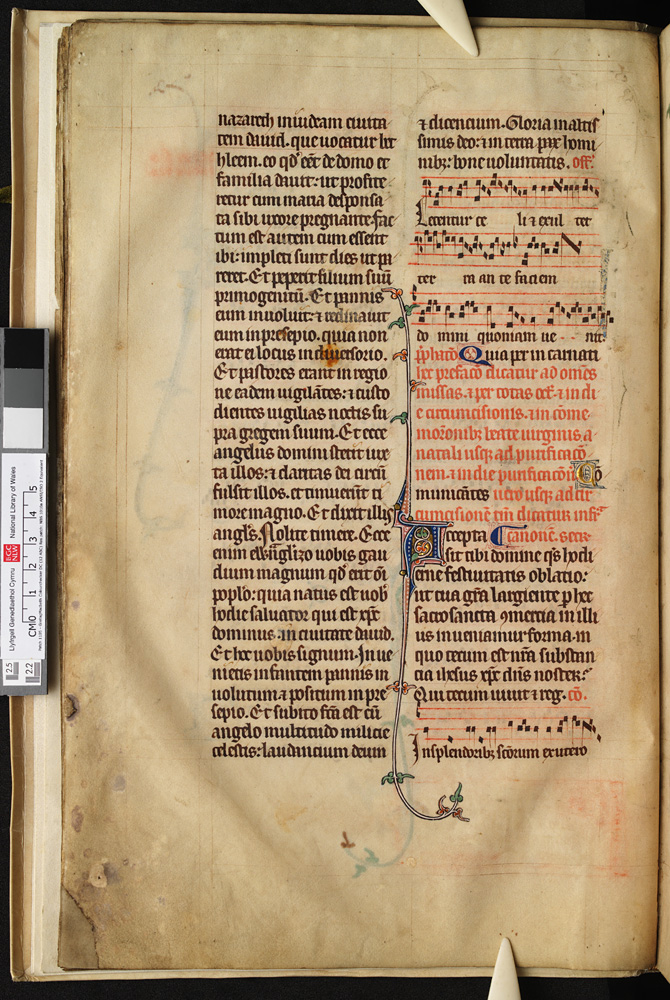 nazareth in iudeam ciuita
tem dauid. que uocatur be
thleem. eo qđ eēt de domo et
familia dauit: ut profite
retur cum maria desponsa
ta sibi uxore pregnante. fac
tum est autem cum essent
ibi: impleti sunt dies ut pa
reret. Et peperit filium suū
primogenitū. Et pannis
eum inuoluit: ⁊ reclinauit
eum in presepio. quia non
erat ei locus in diuersorio.
Et pastores erant in regio
ne eadem uigilātes: ⁊ custo
dientes uigilias noctis su
pra gregem suum. Et ecce
angelus domini stetit iux
ta illos: ⁊ claritas dei circū
fulsit illos. et timuerūt ti
more magno. Et dixit illis
angls. Nolite timere. Ecce
enim ewāgelizo uobis gau
dium magnum qđ erit oī
poplo: quia natus est uob
hodie saluator qui est xpc
dominus. in ciuitate dauid.
Et hoc uobis signum. Inue
nietis infantem pannis in
uolutum: ⁊ positum in pre
sepio. Et subito fca est cū
angelo multitudo milicie
celestis: laudancium deum
⁊ dicencium. Gloria in altis
simis deo: ⁊ in terra pax homi
nibz: bone uoluntatis. off.
Letentur ce li ⁊ exul tet
ter ra an te faciem
do mini quoniam ue nit.
Quia per incarnati
hec prefacō dicatur ad omēs
missas. ⁊ per totas oct. ⁊ in di
e circumcisionis. ⁊ in cōme
moronibz beate uirginis a
natali usqz ad purificacō
nem. ⁊ in die purificacōn Co
municātes usqz ad cir
cumcisionē dicatur infra
Accepta canonē. secr
sit tibi domine qs hodi
erne festiuitatis oblatio:
ut tua grā largiente p hec
sacrosancta ꝯmercia in illi
us inueniamur forma. in
quo tecum est nrā substan
cia ihesus xpc dns noster.
Qui tecum uiuit ⁊ reg. cō.
In splendoribz scōrum ex utero
Llyfrgell Genedlaethol Cymru
National Library of Wales
LlGC
NLW
CM|0 1 2 3 4 5